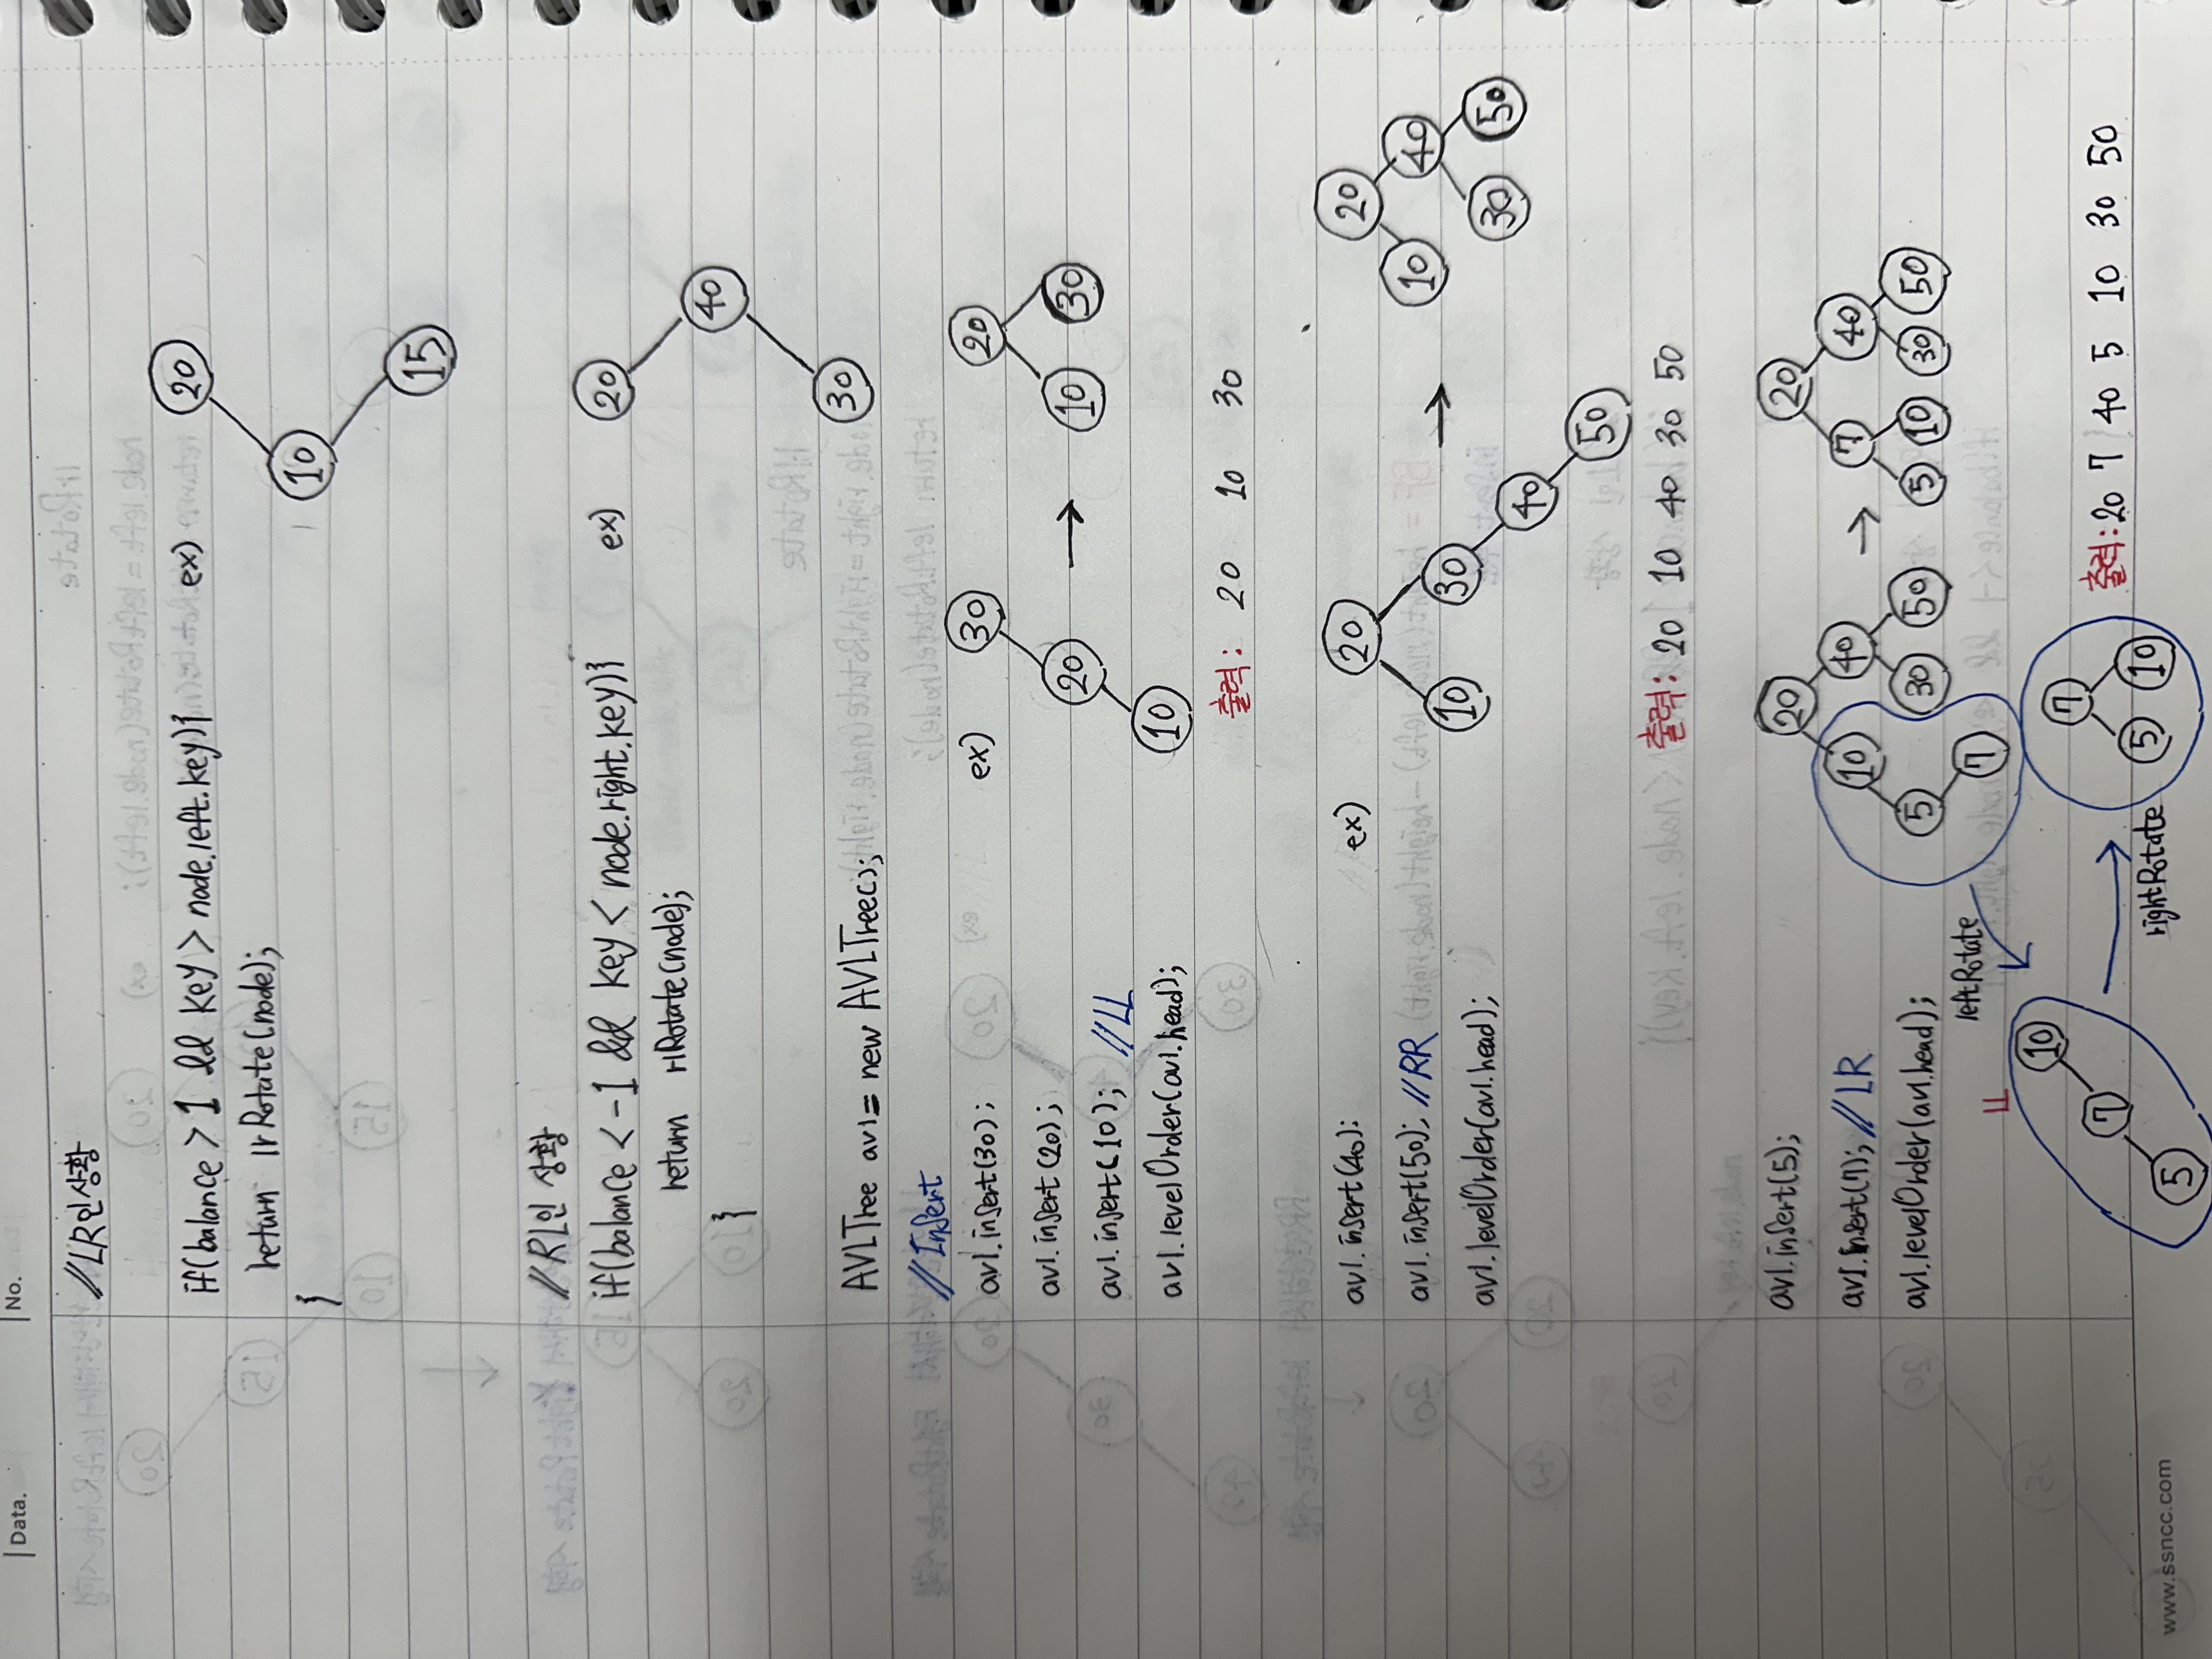 Data.
No.
//LR인 상황
if(balance > 1 && key > node.left.key){ ex) 20
return lrRotate(node);
} 10
15
//RL인 상황
if(balance < -1 && key < node.right.key){ ex) 20
return rlRotate(node);
40
}
30
AVLTree avl = new AVLTree();
//Insert
avl.insert(30); ex) 30 20
avl.insert(20); 20 → 10 30
avl.insert(10); //LL
avl.levelOrder(avl.head); 10
출력: 20 10 30
avl.insert(40); ex) 20 20
avl.insert(50); //RR 10 30 → 10 40
avl.levelOrder(avl.head); 40 30 50
50
출력: 20 10 40 30 50
avl.insert(5); 20 20
avl.insert(7); //LR 10 40 → 7 40
avl.levelOrder(avl.head); 5 30 50 5 10 30 50
leftRotate 7
LL
10 7
7 5 10 출력: 20 7 40 5 10 30 50
rightRotate
5
www.ssncc.com